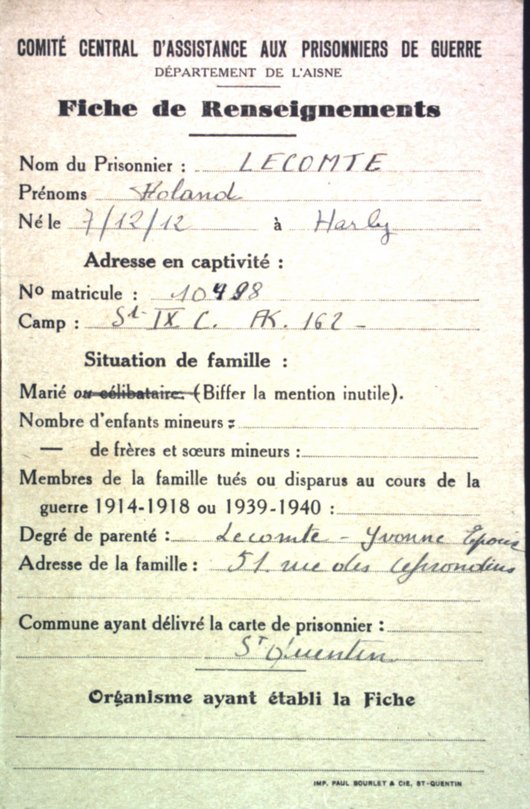 COMITÉ CENTRAL D'ASSISTANCE AUX PRISONNIERS DE GUERRE
DÉPARTEMENT DE L'AISNE
Fiche de Renseignements
Nom du Prisonnier : LECOMTE
Prénoms Roland
Né le 7/12/12 à Harly
Adresse en captivité :
No matricule : 10498
Camp : St IX C. AK. 162 -
Situation de famille :
Marié ou célibataire. (Biffer la mention inutile).
Nombre d'enfants mineurs :
— de frères et sœurs mineurs :
Membres de la famille tués ou disparus au cours de la
guerre 1914-1918 ou 1939-1940 :
Degré de parenté : Lecomte - Yvonne Epouse
Adresse de la famille : 51. rue des
Commune ayant délivré la carte de prisonnier :
St Quentin
Organisme ayant établi la Fiche
IMP. PAUL BOURLET & CIE, ST-QUENTIN